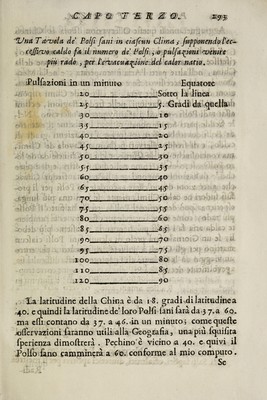 CAPO TERZO. 293
Una Tavola de' Polsi sani in ciascun Clima, supponendo l'ec-
cessivo caldo fa il numero de' Polsi, o pulsazioni venire
più rado, per l'evacuazione del calor natio.
Pulsazioni in un minuto Equatore
20 Sotto la linea
25 5. Gradi da quella
30 10
35 15
40 20
45 25
50 30
55 35
60 40
65 45
70 50
75 55
80 60
85 65
90 70
95 75
100 80
110 85
120 90
La latitudine della China è da 18. gradi di latitudine a
40. e quindi la latitudine de' loro Polsi sani sarà da 37. a 60.
ma essi contano da 37. a 46. in un minuto; come queste
osservazioni saranno utili alla Geografia, una più squisita
sperienza dimostrerà. Pechino è vicino a 40. e quivi il
Polso sano camminerà a 60. conforme al mio computo.
Se